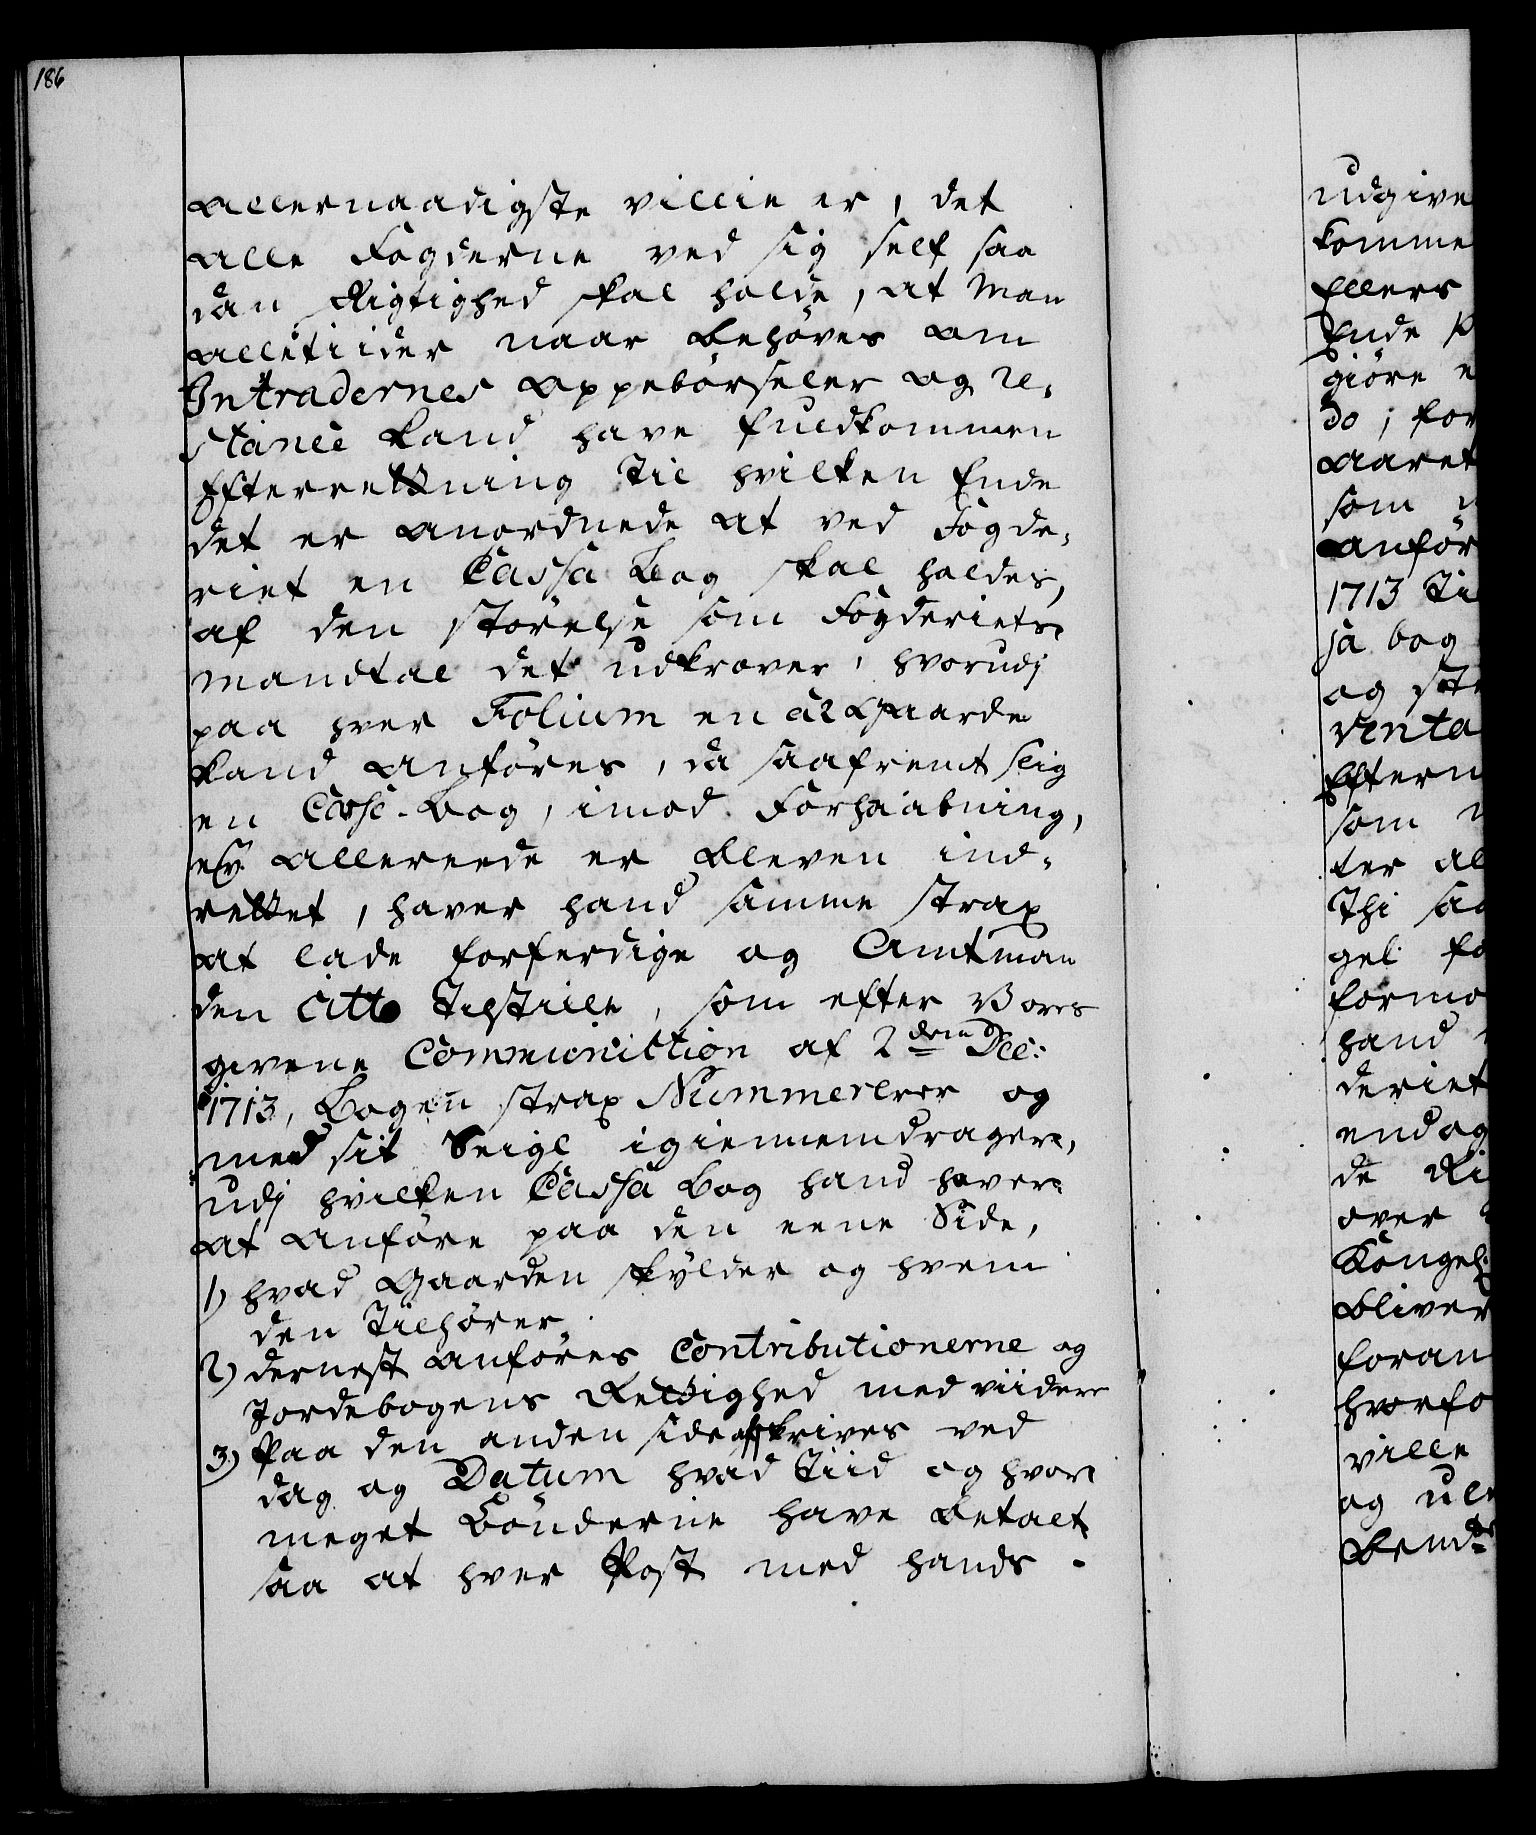 186
allernaadigste villie er, det
alle Fogderne ved sig self saa
dan Rigtighed skal holde, at Man
alletiider naar behøves om
Intradernes oppebørseler og re-
stance kand have fuldkommen
Efterretning til hvilken Ende
det er anordnede at ved Fogde-
riet en Cassa Bog skal holdes,
af den størelse som Fogderiets
mandtal det udkrever, hvorudj
paa hver Folium en à 2 Gaarde
kand anføres, da saafremt slig
en Casse-Bog, imod Forhaabning,
ej allereede er bleven ind-
rettet, haver hand samme strax
at lade forferdige og Amtman
den Cito tilstille, som efter Vores
givene Communication af 2den Dec:
1713, Bogen strax Nummererer og
med sit Seigl igiennemdrager,
udj hvilken Cassa Bog hand haver
at anføre paa den eene Side,
1) hvad Gaarden skylder og hvem
den Tilhører.
2) dernest anføres Contributionerne og
Jordebogens Rettighed med viidere
3) Paa den anden side afskrives ved
dag og Datum hvad Tiid og hvor
meget Bønderne have betalt
saa at hver Post med hands
udgive
komme
Ellers
Ende
giøre
do; for
aaret
som
anfør
1713 Ti
sa bog
og ste
venta
Eftern
som
ter al
Thi saa
gel fo
formo
hand
deriet
endog
de Ri
over
Kongel:
bliver
foran
hvorfo
ville
og ule